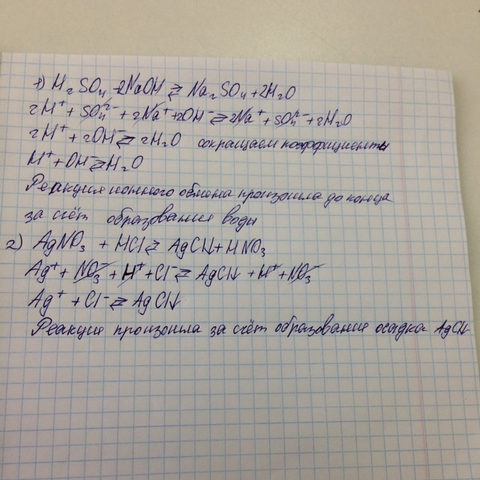 1) H₂SO₄ + 2NaOH ⇄ Na₂SO₄ + 2H₂O
2H⁺ + SO₄²⁻ + 2Na⁺ + 2OH⁻ ⇄ 2Na⁺ + SO₄²⁻ + 2H₂O
2H⁺ + 2OH⁻ ⇄ 2H₂O сокращаем коэффициенты
H⁺ + OH⁻ ⇄ H₂O
Реакция ионного обмена произошла до конца
за счёт образования воды
2) AgNO₃ + HCl ⇄ AgCl↓ + HNO₃
Ag⁺ + NO₃⁻ + H⁺ + Cl⁻ ⇄ AgCl↓ + H⁺ + NO₃⁻
Ag⁺ + Cl⁻ ⇄ AgCl↓
Реакция произошла за счёт образования осадка AgCl↓